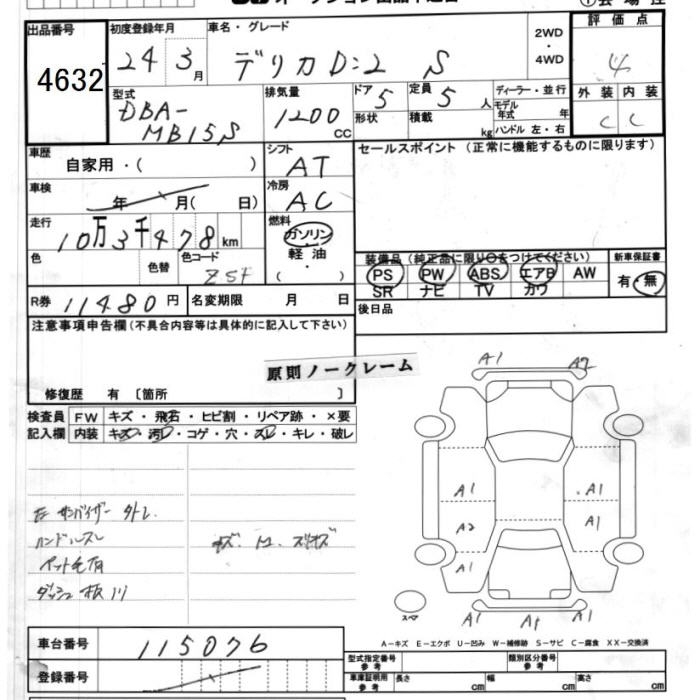 出品番号
4632
初度登録年月
24年 3月
車名・グレード
デリカD:2 S
2WD
・
4WD
評価点
4
外装 内装
C C
型式
DBA-
MB15S
排気量
1200
CC
ドア
5
形状
定員
5 人
積載
kg
ディーラー・並行
モデル
年式 年
ハンドル 左・右
車歴
自家用・( )
シフト
AT
セールスポイント (正常に機能するものに限ります)
車検
年 月( 日)
冷房
AC
走行
10万3千478km
燃料
ガソリン
軽油
( )
色
色替
色コード
ZSF
装備品 (純正品に限り○をつけてください)
PS PW ABS エアB AW
SR ナビ TV カワ
新車保証書
有・無
R券 11480円
名変期限 月 日
後日品
注意事項申告欄 (不具合内容等は具体的に記入して下さい)
原則ノークレーム
修復歴 有 〔箇所 〕
検査員
記入欄
FW キズ・飛石・ヒビ割・リペア跡・×要
内装 キズ・汚レ・コゲ・穴・スレ・キレ・破レ
左 サンバイザー
ハンドルスレ
ペット毛有
A1 A2
A1 A1
A2 A1
A1
A1 A1 A1
スペア
A-キズ E-エクボ U-凹み W-補修跡 S-サビ C-腐食 XX-交換済
車台番号
115076
登録番号
型式指定番号
参考
類別区分番号
参考
車庫証明用
参考
長さ cm
幅 cm
高さ cm